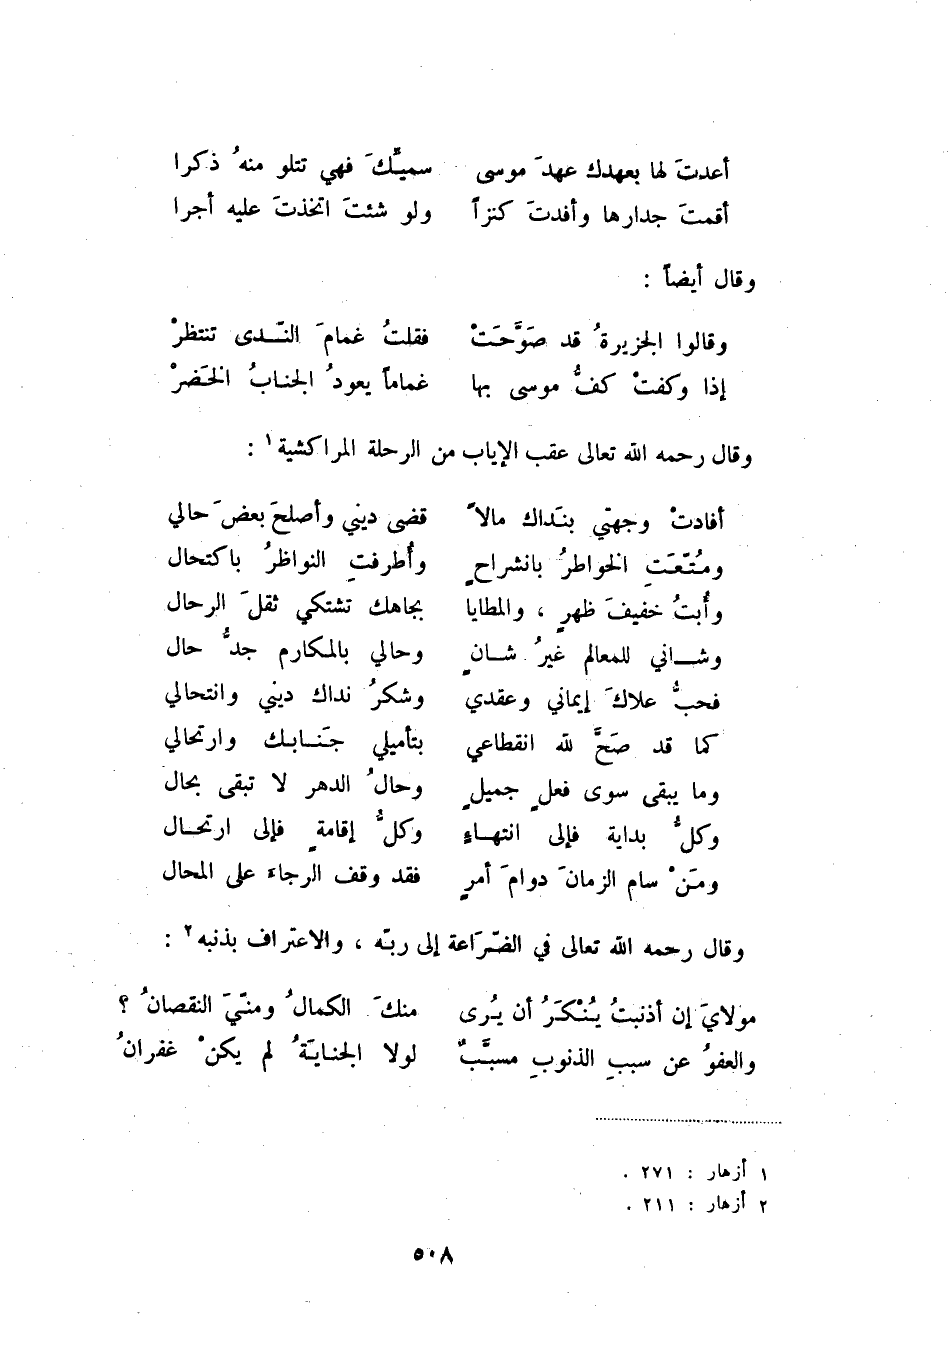 أعدتَ لها بعهدك عهدَ موسى سميِّكَ فهي تتلو منهُ ذكرا
أقمتَ جدارها وأفدتَ كنزاً ولو شئتَ اتخذتَ عليه أجرا
وقال أيضاً :
وقالوا الجزيرةُ قد صَوَّحَتْ فقلتُ غمامَ النّدى تنتظرْ
إذا وكفتْ كفُّ موسى بها غماماً يعودُ الجنابُ الخَضرْ
وقال رحمه الله تعالى عقب الإياب من الرحلة المراكشية١ :
أفادتْ وجهتي بنَداك مالاً قضى ديني وأصلحَ بعضَ حالي
ومُتّعَتِ الخواطرُ بانشراحٍ وأُطرفتِ النواظرُ باكتحال
وأُبتُ خفيفَ ظهرٍ ، والمطايا بجاهك تشتكي ثقلَ الرحال
وشاني للمعالم غيرُ شانٍ وحالي بالمكارم جدُّ حال
فحبُّ علاكَ إيماني وعقدي وشكرُ نداك ديني وانتحالي
كما قد صَحَّ لله انقطاعي بتأميلي جَنابك وارتحالي
وما يبقى سوى فعلٍ جميلٍ وحالُ الدهر لا تبقى بحال
وكلُّ بداية فإلى انتهاءٍ وكلُّ إقامةٍ فإلى ارتحال
ومَنْ سام الزمانَ دوامَ أمرٍ فقد وقف الرجاء على المحال
وقال رحمه الله تعالى في الضّرَاعة إلى ربّه ، والاعتراف بذنبه٢ :
مولايَ إن أذنبتُ يُنْكَرُ أن يُرى منكَ الكمالُ ومنّيَ النقصانُ ؟
والعفوُ عن سببِ الذنوبِ مسبَّبٌ لولا الجنايَةُ لم يكنْ غفرانُ
١ أزهار : ٢٧١ .
٢ أزهار : ٢١١ .
٥٠٨